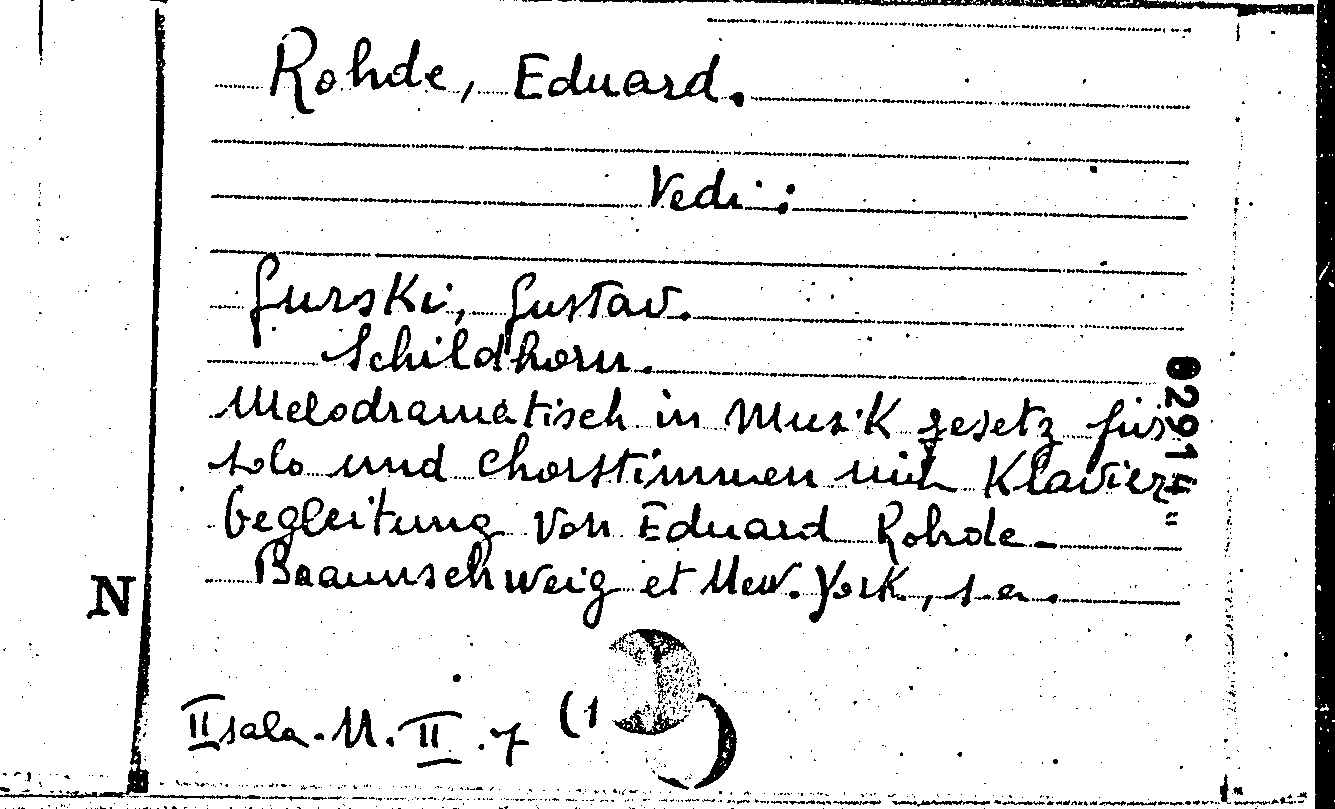 Rohde, Eduard.
Vedi:
Gurski, Gustav.
Schildhorn.
Melodramatisch in Musik gesetz für
solo und Chorstimmen mit Klavier"
begleitung von Eduard Rohde.
Braunschweig et New. York, s.a.
N
02914"
II sala. M. II. 7 (1